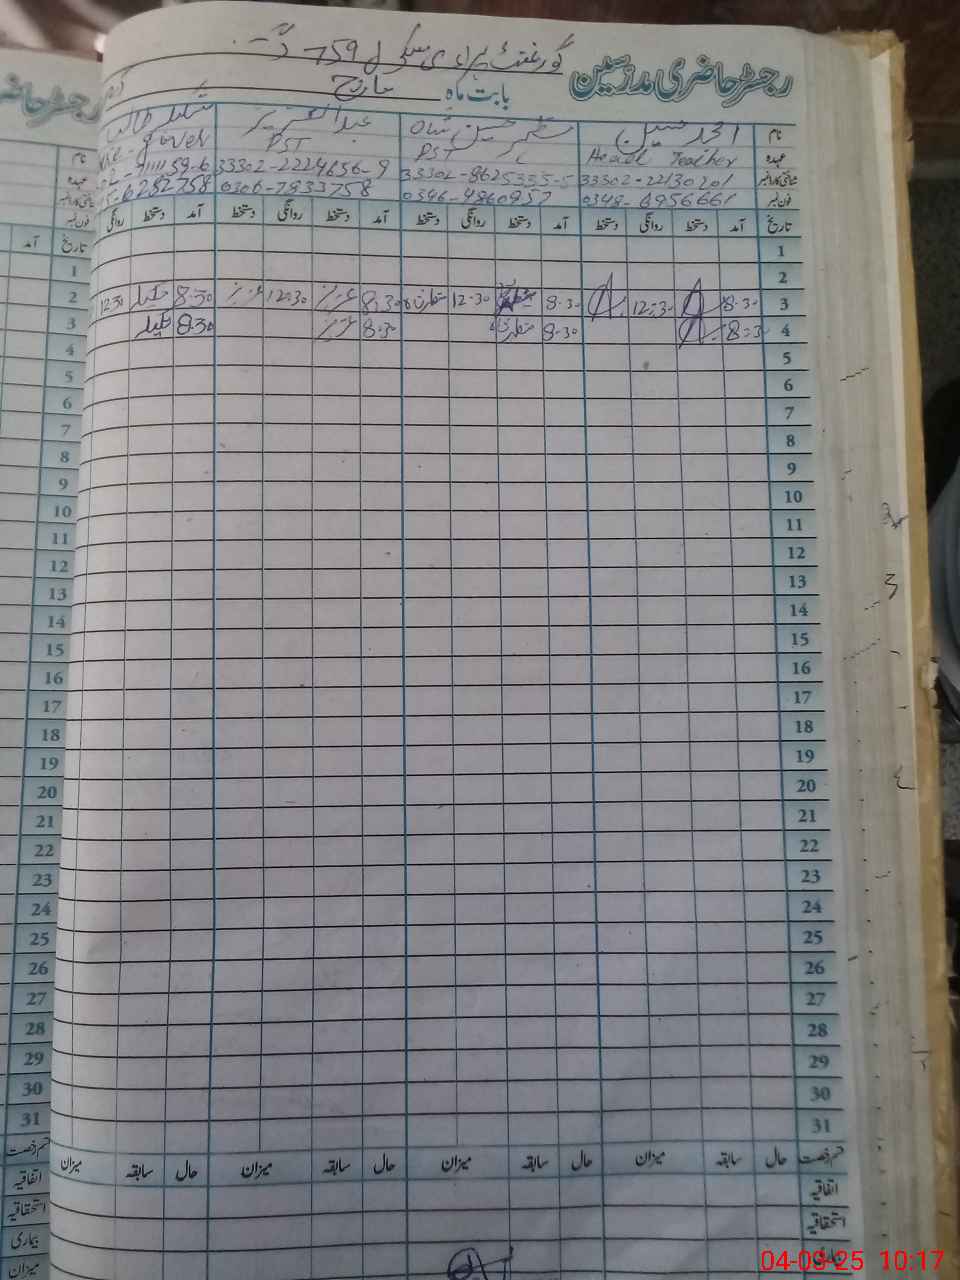 رجسٹر حاضری مدرسین
گورنمنٹ پرائمری سکول 759 گ ب
بابت ماہ مارچ
نام امجد حسین مظہر حسین شاہ عبدالعزیز
عہدہ Head Teacher PST PST
شناختی کارڈ نمبر 33302-2213020/ 33302-8625335-5 33302-2224656-9
فون نمبر 0348-6956661 0346-4860957 0306-7833758 6282758
تاریخ آمد دستخط روانگی دستخط آمد دستخط روانگی دستخط آمد دستخط روانگی دستخط آمد دستخط روانگی
1
2
3 8.30 12:30 8.30 12.30 8.30 عزیز 12.30 عزیز 8.30 12.30
4 8:3 8.30 8.30 عزیز 8.30
5
6
7
8
9
10
11
12
13
14
15
16
17
18
19
20
21
22
23
24
25
26
27
28
29
30
31
قسم رخصت حال سابقہ میزان حال سابقہ میزان حال سابقہ میزان حال سابقہ میزان
اتفاقیہ
استحقاقیہ
بیماری
رجسٹر حاضر
نام
عہدہ
شناختی کارڈ نمبر
فون نمبر
تاریخ آمد
1
2
3
4
5
6
7
8
9
10
11
12
13
14
15
16
17
18
19
20
21
22
23
24
25
26
27
28
29
30
31
قسم رخصت
اتفاقیہ
استحقاقیہ
بیماری
میزان
04-03-25 10:17